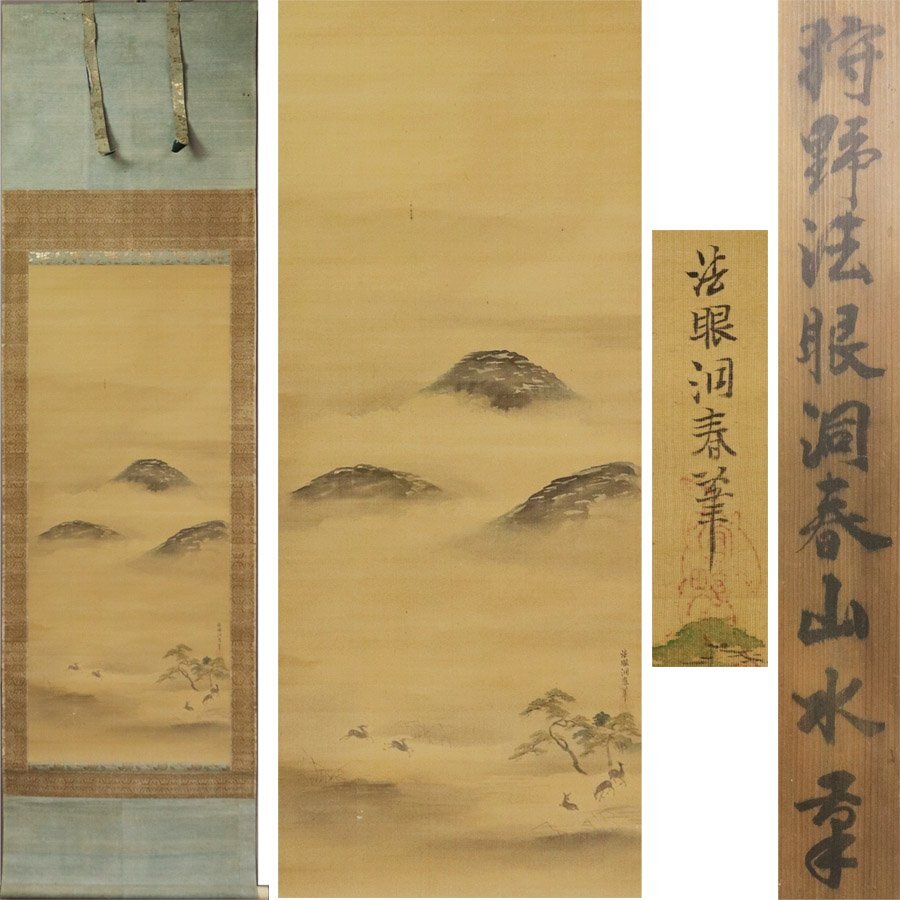 法眼洞春筆
狩野法眼洞春山水筆